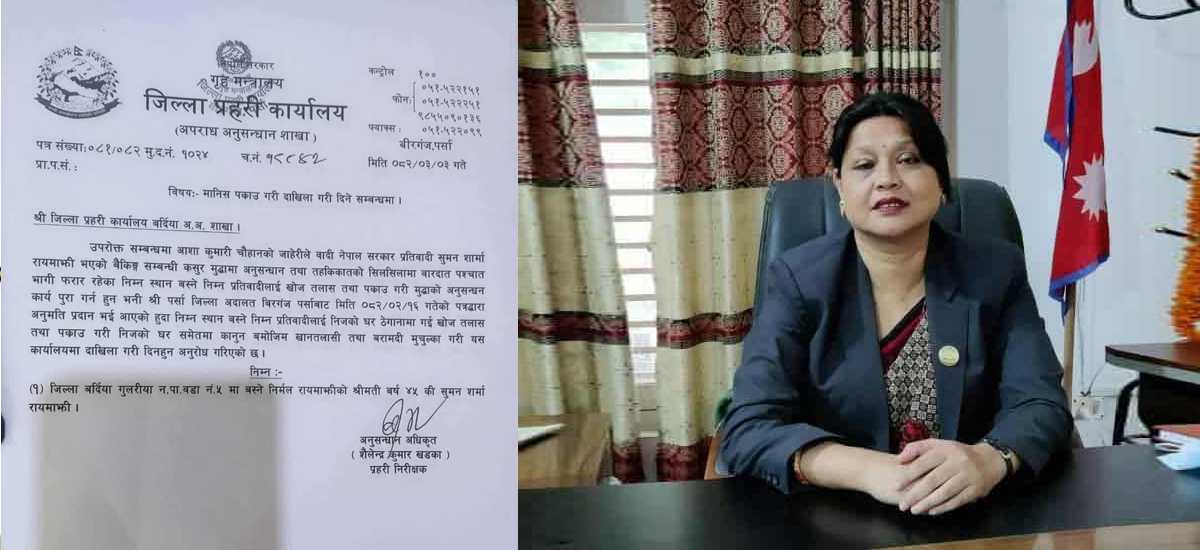 नेपाल सरकार
गृह मन्त्रालय
जिल्ला प्रहरी कार्यालय
(अपराध अनुसन्धान शाखा)
कन्ट्रोल १००
फोन: ०५१-५२२१५१
०५१-५२२२५१
९८५५०९०१३६
फ्याक्स : ०५१-५२२०९९
बीरगंज,पर्सा
पत्र संख्या:०८१/०८२ मु.द.नं. १०२४ च.नं.
मिति ०८२/०३/०३ गते
प्रा.प.सं. :
विषय:- मानिस पकाउ गरी दाखिला गरी दिने सम्बन्धमा ।
श्री जिल्ला प्रहरी कार्यालय बर्दिया अ.अ. शाखा ।
उपरोक्त सम्बन्धमा आशा कुमारी चौहानको जाहेरीले वादी नेपाल सरकार प्रतिवादी सुमन शार्मा
रायमाझी भएको बैकिङ्ग सम्बन्धी कसुर मुद्धामा अनुसन्धान तथा तहकिकातको सिलसिलामा बारदात पश्चात
भागी फरार रहेका निम्न स्थान बस्ने निम्न प्रतिवादीलाई खोज तलास तथा पकाउ गरी मुद्धाको अनुसन्धन
कार्य पुरा गर्न हुन भनी श्री पर्सा जिल्ला अदालत बिरगंज पर्साबाट मिति ०८२/०२/१६ गतेको पत्रद्वारा
अनुमति प्रदान भई आएको हुदा निम्न स्थान बस्ने निम्न प्रतिवादीलाई निजको घर ठेगानामा गई खोज तलास
तथा पकाउ गरी निजको घर समेतमा कानुन बमोजिम खानतलासी तथा बरामदी मुचुल्का गरी यस
कार्यालयमा दाखिला गरी दिनहुन अनुरोध गरिएको छ ।
निम्न :-
(१) जिल्ला बर्दिया गुलरीया न.पा.वडा नं.५ मा बस्ने निर्मल रायमाझीको श्रीमती बर्ष ४५ की सुमन शर्मा
रायमाझी ।
अनुसन्धान अधिकृत
( शैलेन्द्र कुमार खडका )
प्रहरी निरीक्षक